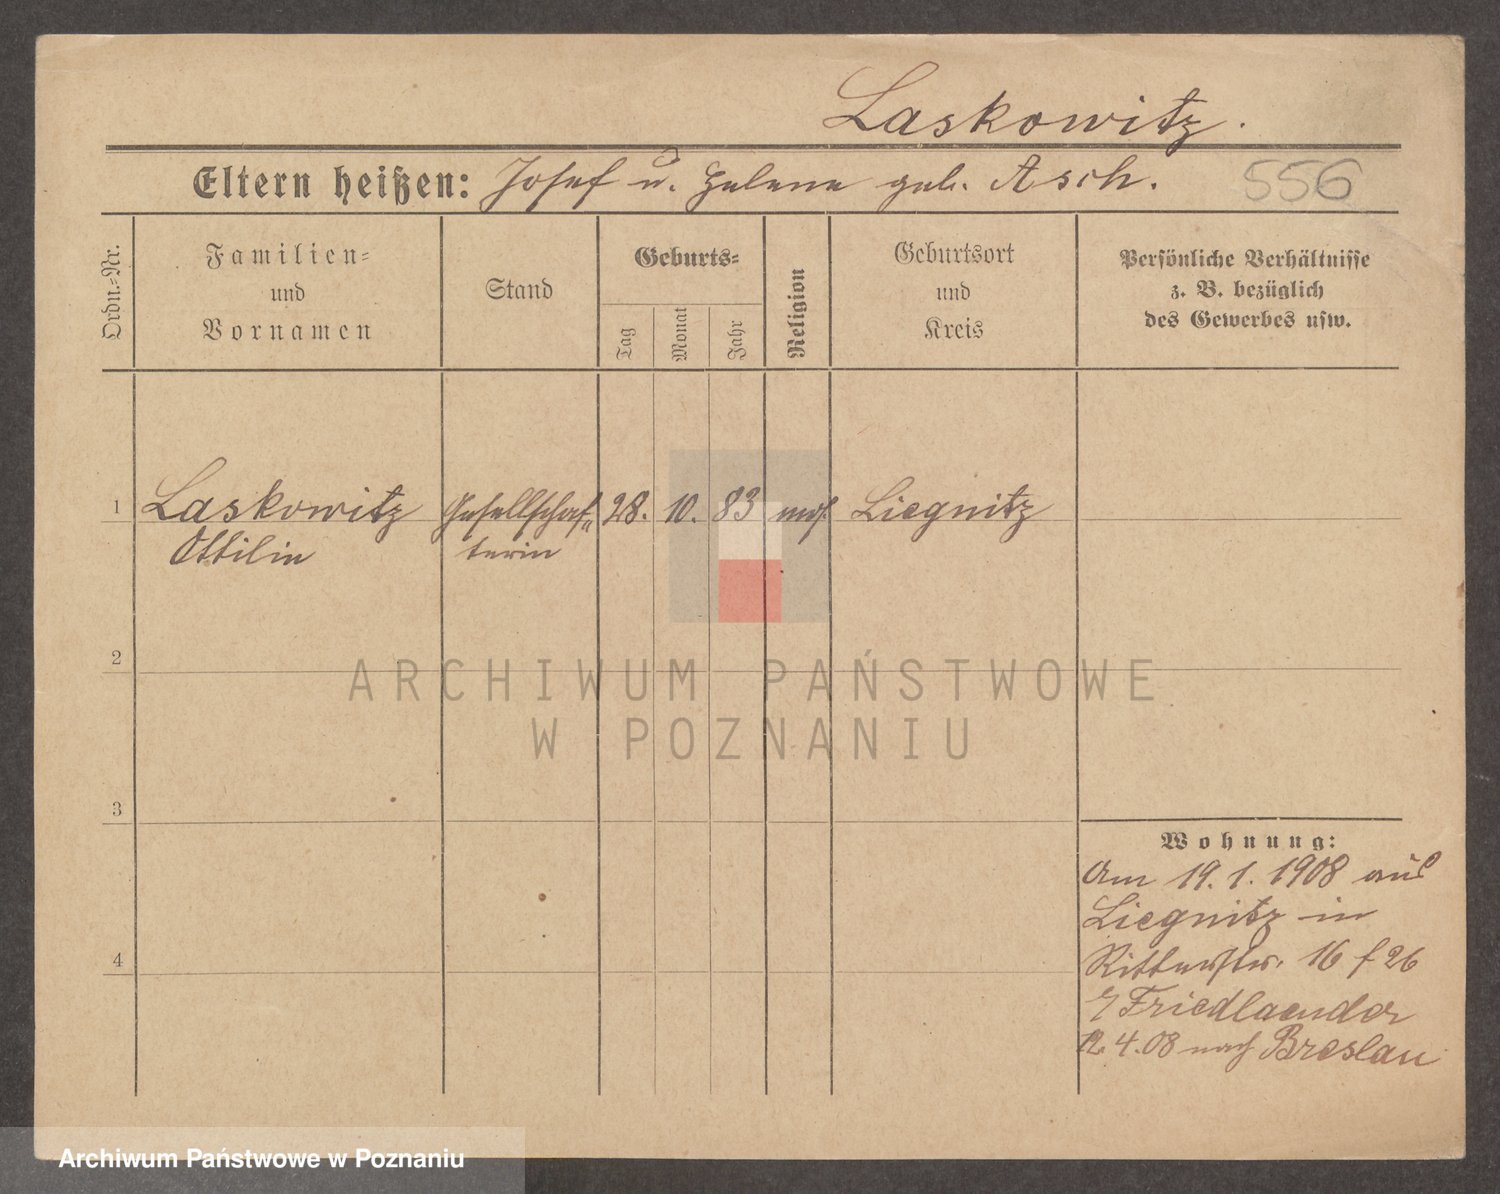 Laskowitz.
Eltern heißen: Josef u. Helene geb. Asch. 556
Ordn.-Nr.
Familien-
und
Vornamen
Stand
Geburts-
Tag
Monat
Jahr
Religion
Geburtsort
und
Kreis
Persönliche Verhältnisse
z. B. bezüglich
des Gewerbes usw.
1 Laskowitz Gesellschaf- 28. 10. 83 mos. Liegnitz
Ottilie terin
2
3
4
Wohnung:
Am 19. 1. 1908 aus
Liegnitz in
Ritterstr. 16 f 26
Friedlaender
12. 4. 08 nach Breslau
ARCHIWUM PAŃSTWOWE
W POZNANIU
Archiwum Państwowe w Poznaniu